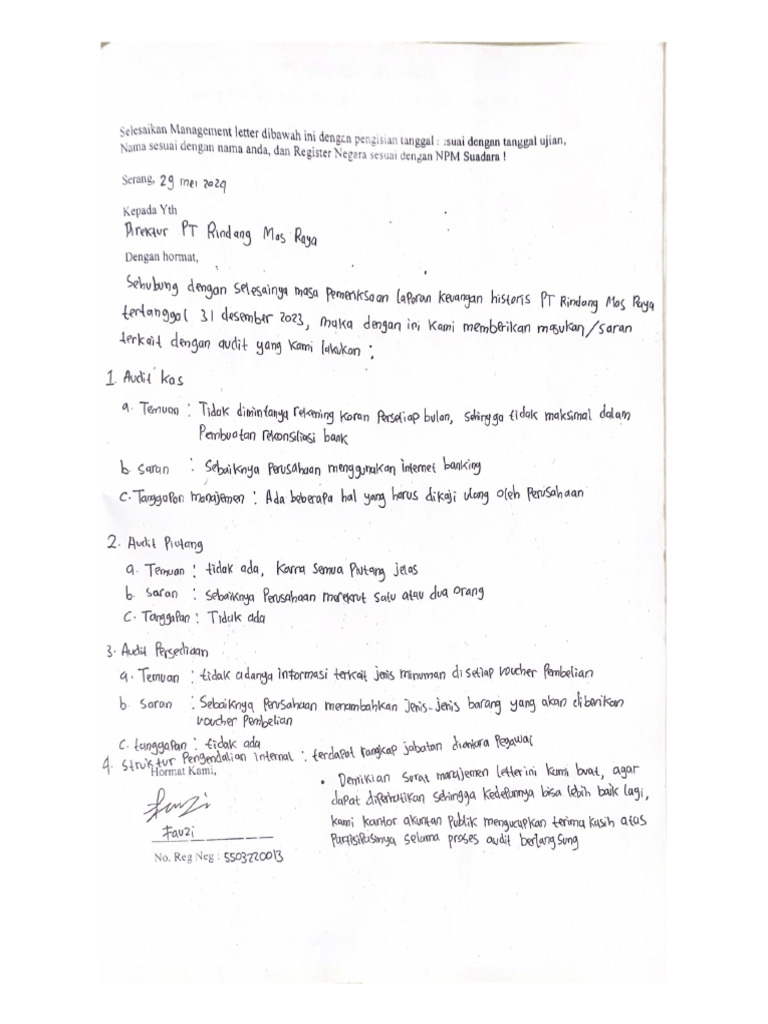 Selesaikan Management letter dibawah ini dengan pengisian tanggal : :suai dengan tanggal ujian,
Nama sesuai dengan nama anda, dan Register Negara sesuai dengan NPM Suadara !
Serang, 29 mei 2024
Kepada Yth
Direktur PT Rindang Mas Raya
Dengan hormat,
Sehubung dengan selesainya masa pemeriksaan laporan keuangan historis PT Rindang Mas Raya
tertanggal 31 desember 2023, maka dengan ini kami memberikan masukan/saran
terkait dengan audit yang kami lakukan :
1. Audit kas
a. Temuan : Tidak dimintanya rekening koran Persetiap bulan, sehingga tidak maksimal dalam
Pembuatan rekonsiliasi bank
b saran : Sebaiknya Perusahaan menggunakan internet banking
c. Tanggapan manajemen : Ada beberapa hal yang harus dikaji ulang oleh Perusahaan
2. Audit Piutang
a. Temuan : tidak ada, karna semua Piutang jelas
b. saran : sebaiknya Perusahaan merekrut satu atau dua orang
c. Tanggapan : Tidak ada
3. Audit Persediaan
a. Temuan : tidak adanya informasi terkait jenis minuman di setiap voucher Pembelian
b. saran : Sebaiknya Perusahaan menambahkan Jenis-jenis barang yang akan diberikan
voucher Pembelian
c. tanggapan : tidak ada
4. Struktur Pengendalian internal : terdapat rangkap jabatan diantara Pegawai
Hormat Kami,
• Demikian surat manajemen letter ini kami buat, agar
dapat diperhatikan sehingga kedepannya bisa lebih baik lagi,
kami kantor akuntan Publik mengucapkan terima kasih atas
Partisipasinya selama proses audit berlangsung
Fauzi
Fauzi
No. Reg Neg : 5503220013